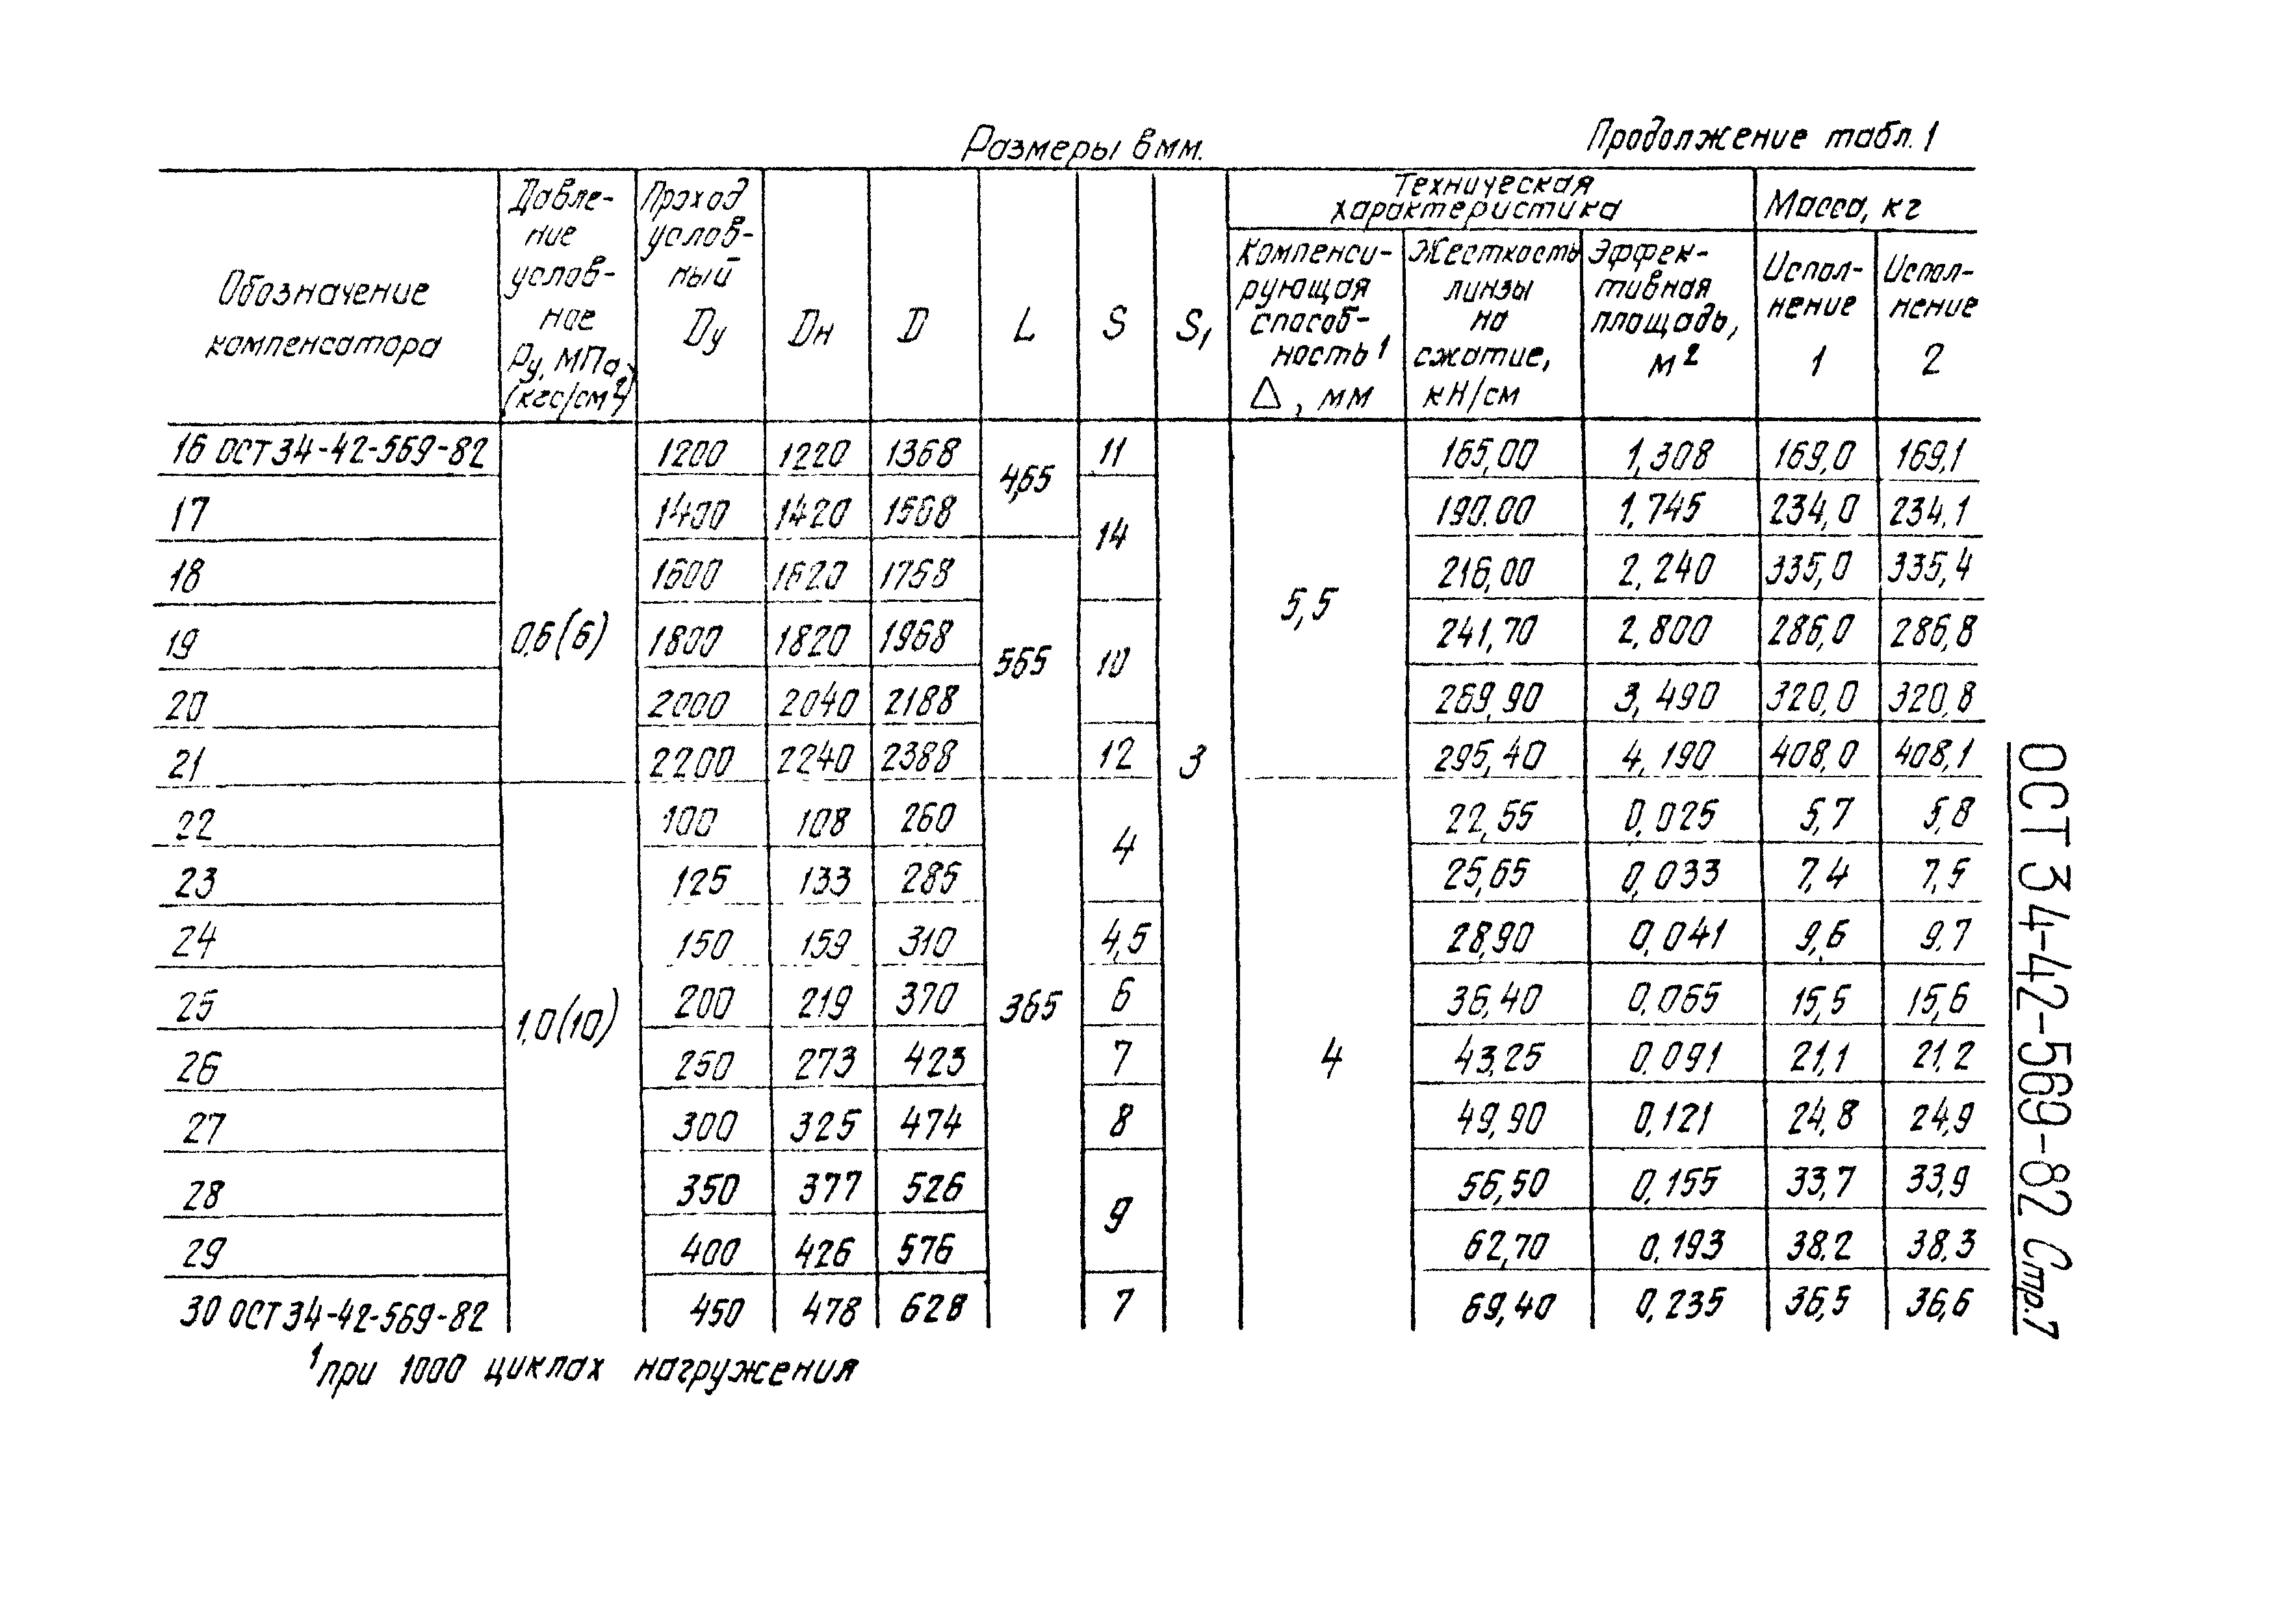 Размеры в мм.
Продолжение табл. 1
Обозначение
компенсатора
Давле-
ние
услов-
ное
Pу, МПа
(кгс/см²)
Проход
услов-
ный
Dу
Dн
D
L
S
S₁
Техническая
характеристика
Компенси-
рующая
способ-
ность¹
△, мм
Жесткость
линзы
на
сжатие,
кН/см
Эффек-
тивная
площадь,
м²
Масса, кг
Испол-
нение
1
Испол-
нение
2
16 ОСТ 34-42-569-82 0,6(6) 1200 1220 1368 465 11 3 5,5 165,00 1,308 169,0 169,1
17 1400 1420 1568 14 190.00 1,745 234,0 234,1
18 1600 1620 1768 565 216,00 2,240 335,0 335,4
19 1800 1820 1968 10 241,70 2,800 286,0 286,8
20 2000 2040 2188 269,90 3,490 320,0 320,8
21 2200 2240 2388 12 295,40 4,190 408,0 408,1
22 1,0(10) 100 108 260 365 4 4 22,55 0,025 5,7 5,8
23 125 133 285 25,65 0,033 7,4 7,5
24 150 159 310 4,5 28,90 0,041 9,6 9.7
25 200 219 370 6 36,40 0,065 15,5 15,6
26 250 273 423 7 43,25 0,091 21,1 21,2
27 300 325 474 8 49,90 0,121 24,8 24,9
28 350 377 526 9 56,50 0,155 33,7 33,9
29 400 426 576 62,70 0,193 38.2 38,3
30 ОСТ 34-42-569-82 450 478 628 7 69,40 0,235 36,5 36,6
¹при 1000 циклах нагружения
ОСТ 34-42-569-82 Стр.7